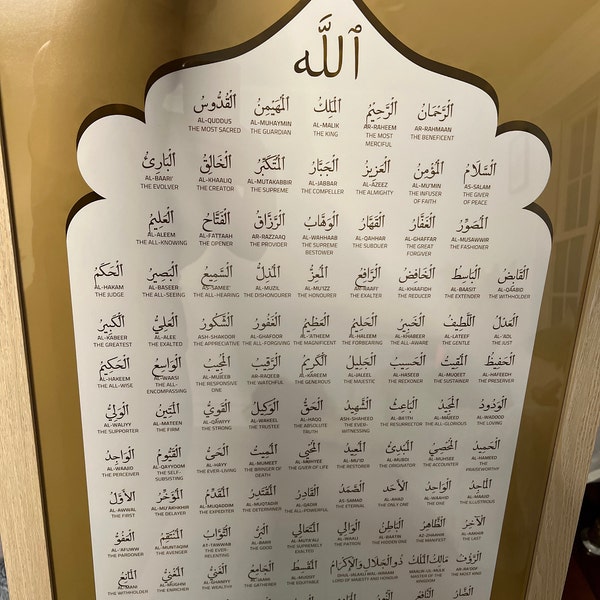 ٱللَّه
الْرَّحْمَانُ
AR-RAHMAAN
THE BENEFICENT
الْرَّحِيْمُ
AR-RAHEEM
THE MOST
MERCIFUL
الْمَلِكُ
AL-MALIK
THE KING
الْمُهَيْمِنُ
AL-MUHAYMIN
THE GUARDIAN
الْقُدُّوسُ
AL-QUDDUS
THE MOST SACRED
السَّلَامُ
AS-SALAM
THE GIVER
OF PEACE
الْمُؤْمِنُ
AL-MU'MIN
THE INFUSER
OF FAITH
الْعَزِيزُ
AL-AZEEZ
THE ALMIGHTY
الْجَبَّارُ
AL-JABBAR
THE COMPELLER
الْمُتَكَبِّرُ
AL-MUTAKABBIR
THE SUPREME
الْخَالِقُ
AL-KHAALIQ
THE CREATOR
الْبَارِئُ
AL-BAARI'
THE EVOLVER
الْمُصَوِّرُ
AL-MUSAWWIR
THE FASHIONER
الْغَفَّارُ
AL-GHAFFAR
THE GREAT
FORGIVER
الْقَهَّارُ
AL-QAHHAR
THE SUBDUER
الْوَهَّابُ
AL-WAHHAAB
THE SUPREME
BESTOWER
الرَّزَّاقُ
AR-RAZZAAQ
THE PROVIDER
الْفَتَّاحُ
AL-FATTAAH
THE OPENER
الْعَلِيمُ
AL-ALEEM
THE ALL-KNOWING
الْقَابِضُ
AL-QAABID
THE WITHHOLDER
الْبَاسِطُ
AL-BAASIT
THE EXTENDER
الْخَافِضُ
AL-KHAAFIDH
THE REDUCER
الرَّافِعُ
AR-RAAFI'
THE EXALTER
الْمُعِزُّ
AL-MU'IZZ
THE HONOURER
الْمُذِلُّ
AL-MUZIL
THE DISHONOURER
السَّمِيعُ
AS-SAMEE'
THE ALL-HEARING
الْبَصِيرُ
AL-BASEER
THE ALL-SEEING
الْحَكَمُ
AL-HAKAM
THE JUDGE
الْعَدْلُ
AL-'ADL
THE JUST
اللَّطِيفُ
AL-LATEEF
THE GENTLE
الْخَبِيرُ
AL-KHABEER
THE ALL-AWARE
الْحَلِيمُ
AL-HALEEM
THE FORBEARING
الْعَظِيمُ
AL-ATHEEM
THE MAGNIFICENT
الْغَفُورُ
AL-GHAFOOR
THE ALL-FORGIVING
الشَّكُورُ
ASH-SHAKOOR
THE APPRECIATIVE
الْعَلِيُّ
AL-ALEE
THE EXALTED
الْكَبِيرُ
AL-KABEER
THE GREATEST
الْحَفِيظُ
AL-HAFEEDH
THE PRESERVER
الْمُقِيتُ
AL-MUQEET
THE SUSTAINER
الْحَسِيبُ
AL-HASEEB
THE RECKONER
الْجَلِيلُ
AL-JALEEL
THE MAJESTIC
الْكَرِيمُ
AL-KAREEM
THE GENEROUS
الرَّقِيبُ
AR-RAQEEB
THE WATCHFUL
الْمُجِيبُ
AL-MUJEEB
THE RESPONSIVE
ONE
الْوَاسِعُ
AL-WAASI'
THE ALL-
ENCOMPASSING
الْحَكِيمُ
AL-HAKEEM
THE ALL-WISE
الْوَدُودُ
AL-WUDOOD
THE LOVING
الْمَجِيدُ
AL-MAJEED
THE ALL-GLORIOUS
الْبَاعِثُ
AL-BA'ITH
THE RESURRECTOR
الشَّهِيدُ
ASH-SHAHEED
THE EVER-
WITNESSING
الْحَقُّ
AL-HAQQ
THE ABSOLUTE
TRUTH
الْوَكِيلُ
AL-WAKEEL
THE TRUSTEE
الْقَوِيُّ
AL-QAWIYY
THE STRONG
الْمَتِينُ
AL-MATEEN
THE FIRM
الْوَلِيُّ
AL-WALIYY
THE SUPPORTER
الْحَمِيدُ
AL-HAMEED
THE
PRAISEWORTHY
الْمُحْصِي
AL-MUHSEE
THE ACCOUNTER
الْمُبْدِئُ
AL-MUBDI
THE ORIGINATOR
الْمُعِيدُ
AL-MU'ID
THE RESTORER
الْمُحْيِي
AL-MUHYEE
THE GIVER OF LIFE
الْمُمِيتُ
AL-MUMEET
THE BRINGER OF
DEATH
الْحَيُّ
AL-HAYY
THE EVER-LIVING
الْقَيُّومُ
AL-QAYYOOM
THE SELF-
SUBSISTING
الْوَاجِدُ
AL-WAAJID
THE PERCEIVER
الْمَاجِدُ
AL-MAAJID
THE ILLUSTRIOUS
الْوَاحِدُ
AL-WAAHID
THE ONE
الْأَحَد
AL-AHAD
THE ONLY ONE
الصَّمَدُ
AS-SAMAD
THE ETERNAL
الْقَادِرُ
AL-QADIR
THE ALL-
POWERFUL
الْمُقْتَدِرُ
AL-MUQTADIR
THE DETERMINER
الْمُقَدِّمُ
AL-MUQADDIM
THE EXPEDITER
الْمُؤَخِّرُ
AL-MU'AKHKHIR
THE DELAYER
الأوَّلُ
AL-AWWAL
THE FIRST
الآخِرُ
AL-AKHIR
THE LAST
الظَّاهِرُ
AZ-ZHAAHIR
THE MANIFEST
الْبَاطِنُ
AL-BAATIN
THE HIDDEN ONE
الْوَالِي
AL-WAALI
THE PATRON
الْمُتَعَالِي
AL-MUTA'ALI
THE SUPREMELY
EXALTED
الْبَرُّ
AL-BARR
THE GOOD
التَّوَّابُ
AT-TAWWAB
THE EVER-
RELENTING
الْمُنْتَقِمُ
AL-MUNTAQIM
THE AVENGER
العَفُوُّ
AL-AFUWW
THE PARDONER
الرَّؤُوفُ
AR-RA'OOF
THE MOST KIND
مَالِكُ الْمُلْكِ
MAALIK-UL-MULK
MASTER OF THE
KINGDOM
ذُوالْجَلَالِ وَالإكْرَامِ
DHUL-JALAALI WAL-IKRAAM
LORD OF MAJESTY AND HONOUR
الْمُقْسِطُ
AL-MUQSIT
THE EQUITABLE
الْجَامِعُ
AL-JAAMI
THE GATHERER
الْغَنِيُّ
AL-GHANIYY
THE WEALTHY
الْمُغْنِيُّ
AL-MUGHNI
THE ENRICHER
الْمَانِعُ
AL-MANI
THE WITHHOLDER
الضَّارُّ